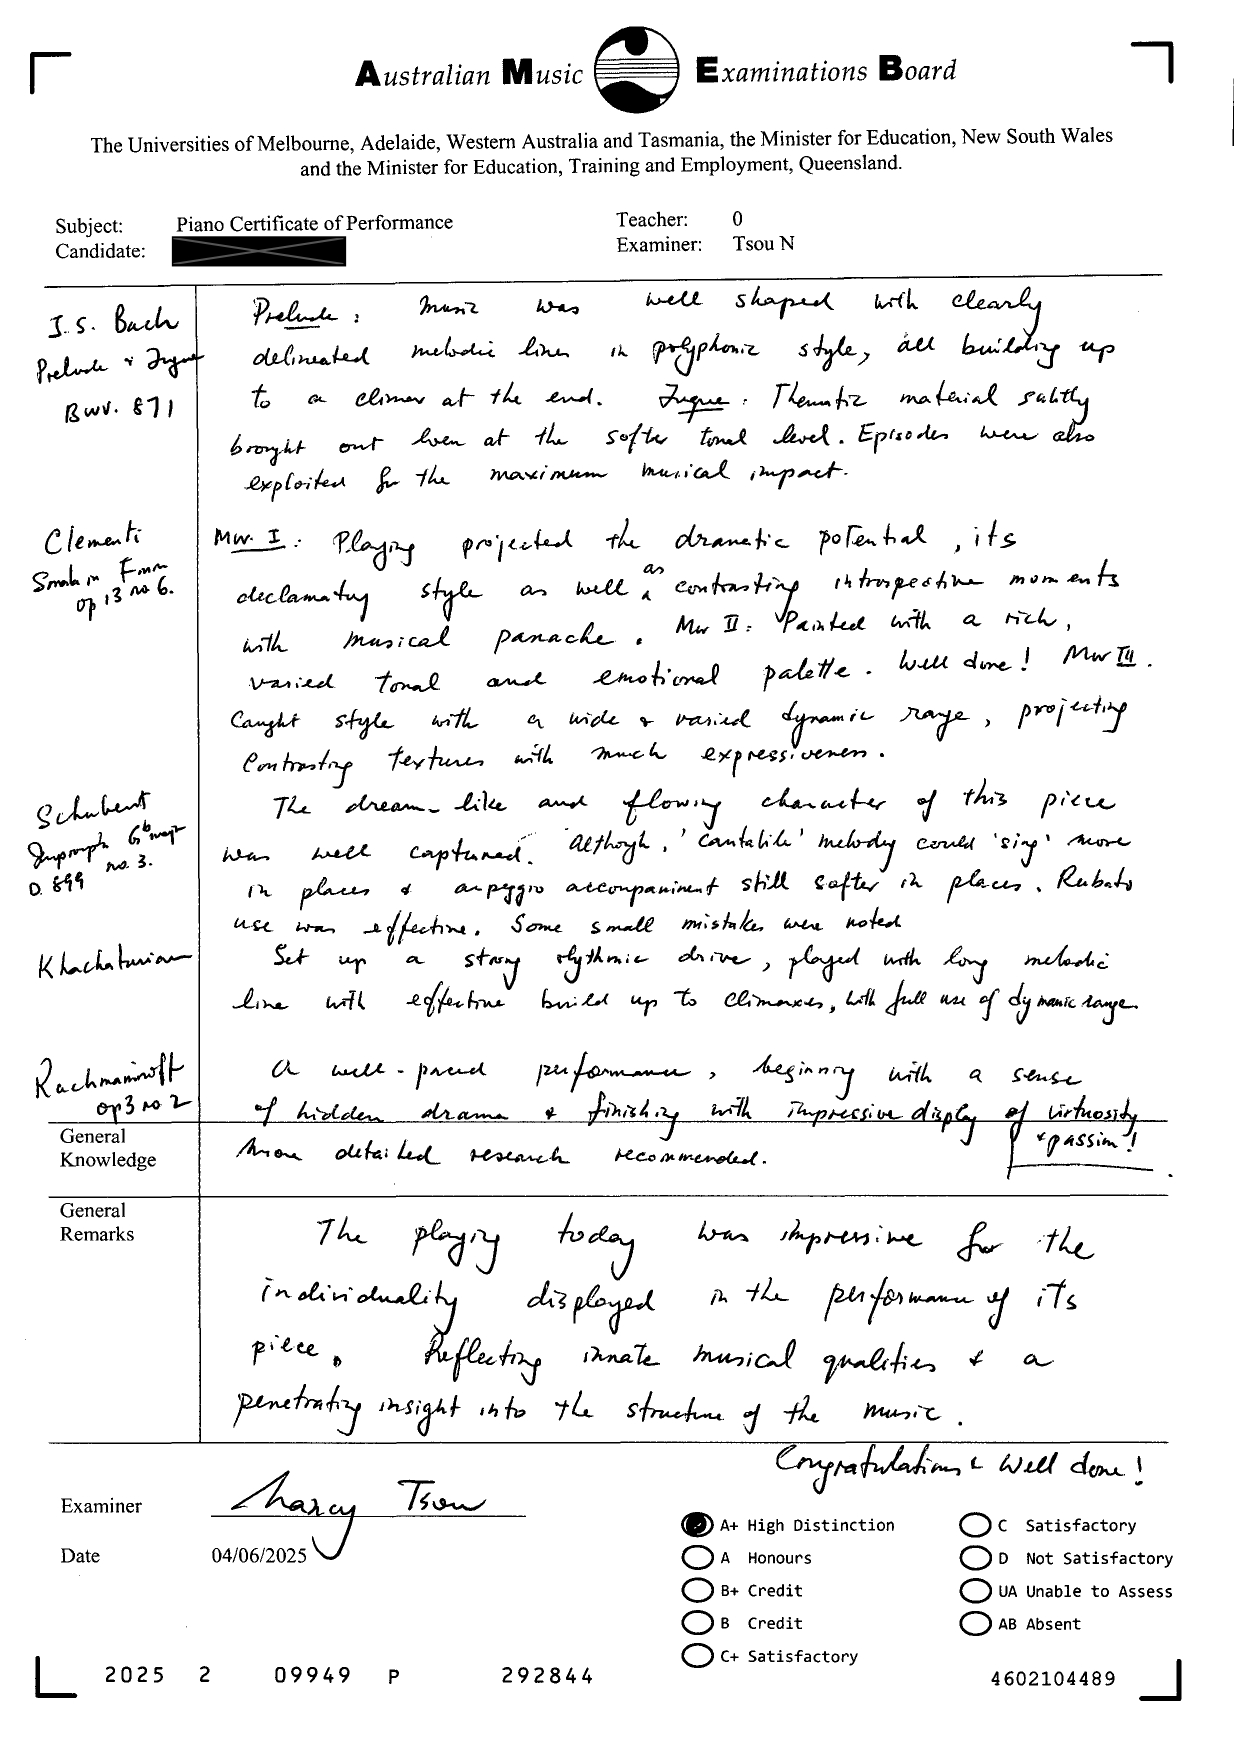 Australian Music Examinations Board
The Universities of Melbourne, Adelaide, Western Australia and Tasmania, the Minister for Education, New South Wales
and the Minister for Education, Training and Employment, Queensland.
Subject: Piano Certificate of Performance
Teacher: 0
Candidate:
Examiner: Tsou N
J.S. Bach
Prelude & Fugue
BWV. 871
Prelude: Music was well shaped with clearly
delineated melodic lines in polyphonic style, all building up
to a climax at the end. Fugue: Thematic material subtly
brought out even at the softer tonal level. Episodes were also
exploited for the maximum musical impact.
Clementi
Sonata in F min
op 13 no 6.
Mov. I: Playing projected the dramatic potential, its
declamatory style as well as contrasting introspective moments
with musical panache. Mov II: Painted with a rich,
varied tonal and emotional palette. Well done! Mov III.
Caught style with a wide & varied dynamic range, projecting
contrasting textures with much expressiveness.
Schubert
Impromptu Gb major
D. 899 no. 3.
The dream-like and flowing character of this piece
was well captured. Although, 'cantabile' melody could 'sing' more
in places & arpeggio accompaniment still softer in places. Rubato
use was effective. Some small mistakes were noted
Khachaturian
Set up a strong rhythmic drive, played with long melodic
line with effective build up to climaxes, with full use of dynamic range.
Rachmaninoff
op 3 no 2
A well-paced performance, beginning with a sense
of hidden drama & finishing with impressive display of virtuosity
& passion!
General
Knowledge
More detailed research recommended.
General
Remarks
The playing today was impressive for the
individuality displayed in the performance of its
piece. Reflecting innate musical qualities & a
penetrating insight into the structure of the music.
Congratulations & Well done!
Examiner Nancy Tsou
Date 04/06/2025
A+ High Distinction
A Honours
B+ Credit
B Credit
C+ Satisfactory
C Satisfactory
D Not Satisfactory
UA Unable to Assess
AB Absent
2025 2 09949 P 292844 4602104489